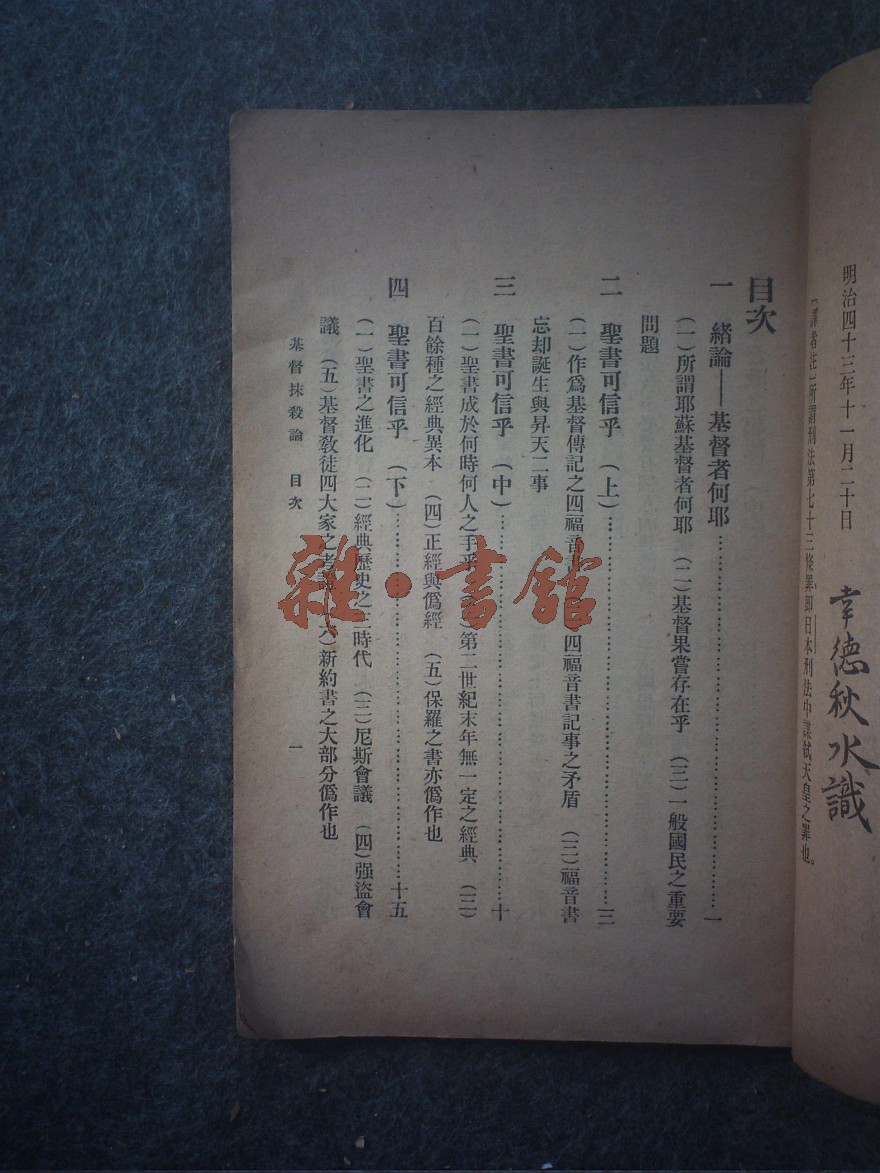 明治四十三年十一月二十日
幸德秋水識
〔譯者注〕所謂刑法第七十三條罪卽日本刑法中謀弒天皇之罪也。
目次
一 緒論——基督者何耶……一
(一)所謂耶蘇基督者何耶 (二)基督果嘗存在乎 (三)一般國民之重要
問題
二 聖書可信乎 (上)……三
(一)作爲基督傳記之四福音書 四福音書記事之矛盾 (三)福音書
忘却誕生與昇天二事
三 聖書可信乎 (中)……十
(一)聖書成於何時何人之手乎 (二)第二世紀末年無一定之經典 (三)
百餘種之經典異本 (四)正經與僞經 (五)保羅之書亦僞作也
四 聖書可信乎 (下)……十五
(一)聖書之進化 (二)經典歷史之三時代 (三)尼斯會議 (四)强盜會
議 (五)基督敎徒四大家之考 (六)新約書之大部分僞作也
基督抹殺論 目次
一
雜·書館